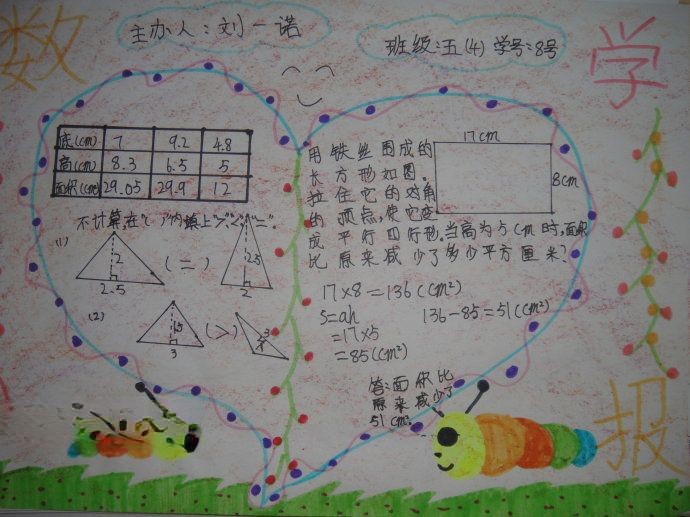 数学报
主办人:刘一诺
班级:五(4)学号:8号
底(cm) 7 9.2 4.8
高(cm) 8.3 6.5 5
面积(cm) 29.05 29.9 12
不计算,在"( )"内填上">""<""="。
(1)
2
2.5
(=)
2.5
2
(2)
3
(>)
3
用铁丝围成的
长方形如图。
拉住它的对角
的顶点,使它变
成平行四行形。当高为5cm时,面积
比原来减少了多少平方厘米?
17cm
8cm
17×8=136(cm²)
S=ah
=17×5
=85(cm²)
136-85=51(cm²)
答:面积比
原来减少了
51cm².